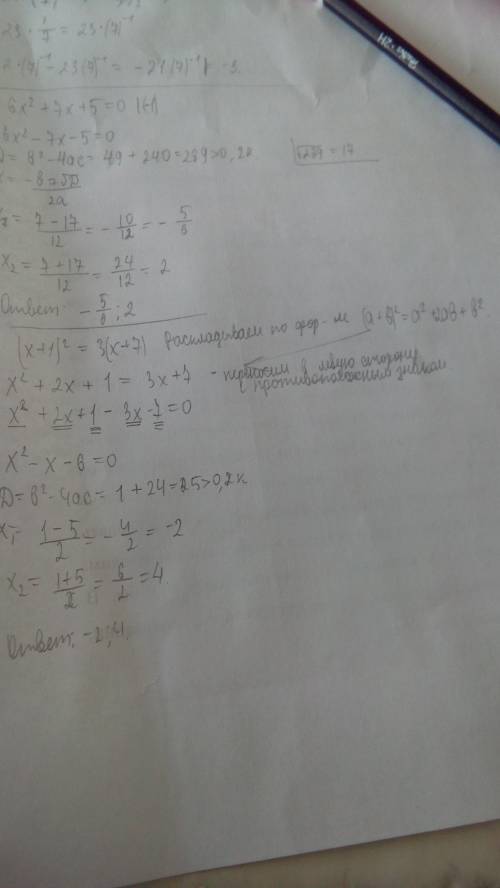 23 · 1/7 = 23·(7)⁻¹
2·(7)⁻¹ - 23(7)⁻¹ = -21(7)⁻¹
6x² + 7x + 5 = 0
6x² - 7x - 5 = 0
D = в² - 4ас = 49 + 240 = 289 > 0, 2к
√289 = 17
2а
7 - 17 / 12 = - 10/12 = - 5/6
x₂ = 7 + 17 / 12 = 24/12 = 2
Ответ: - 5/6 ; 2
(x+1)² = 3(x+7) раскладываем по фор-ле (а+в)² = а² + 2ав + в²
x² + 2x + 1 = 3x + 7 - переносим в левую сторону
с противоположным знаком
x² + 2x + 1 - 3x - 7 = 0
x² - x - 6 = 0
D = в² - 4ас = 1 + 24 = 25 > 0, 2к
x₁ = 1 - 5 / 2 = - 4/2 = -2
x₂ = 1+5 / 2 = 6/2 = 4
Ответ: -2; 4.